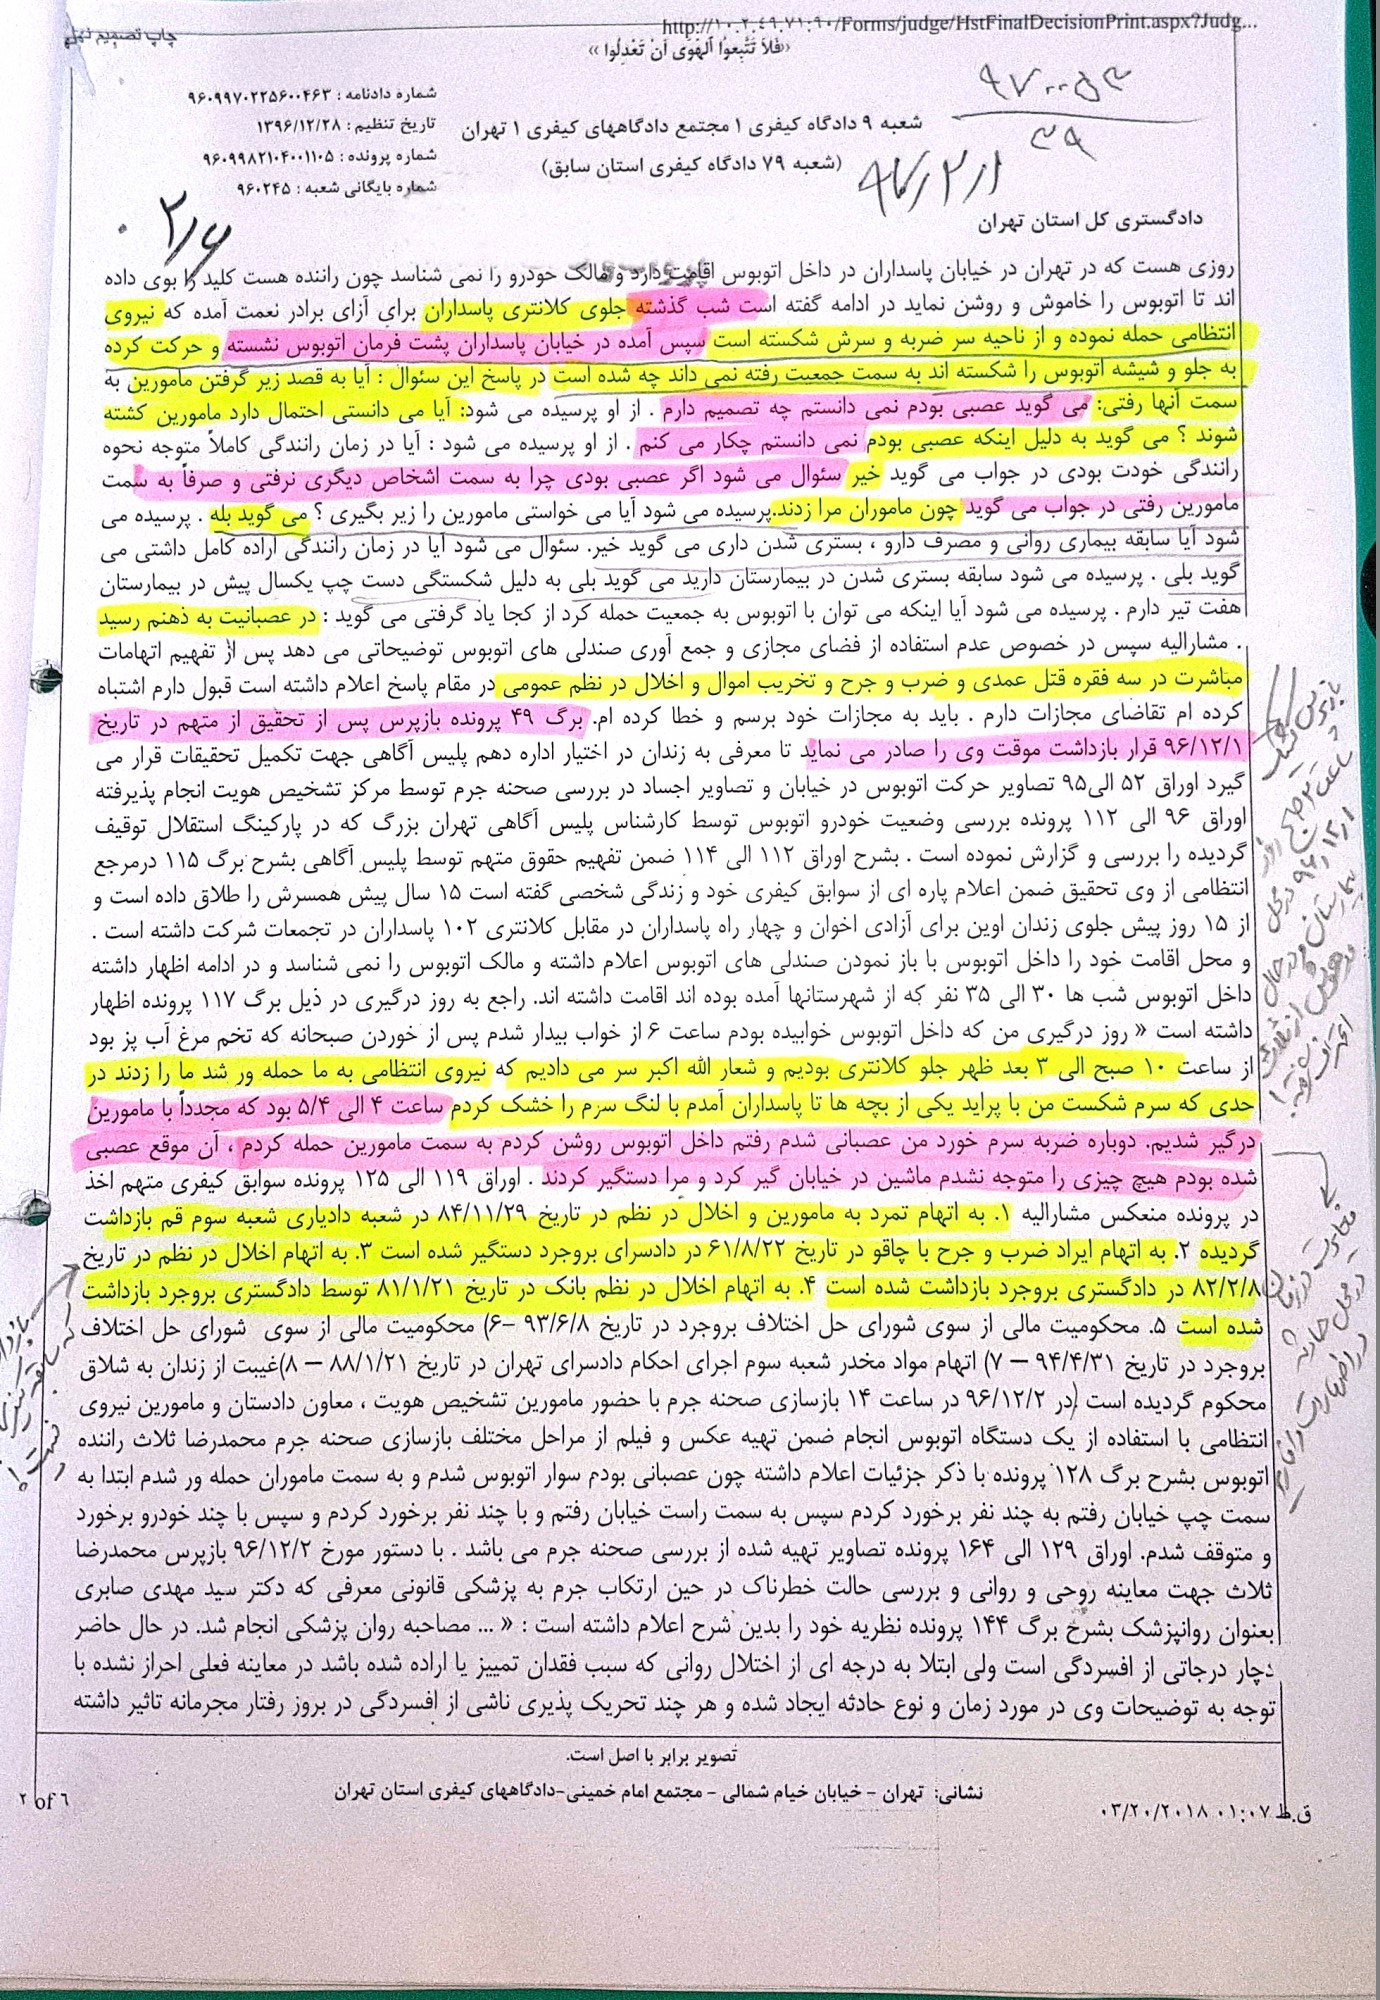 چاپ تصمیم نهایی
http://۱۰.۲.۴۹.۷۱:۹۰/Forms/judge/HstFinalDecisionPrint.aspx?Judg...
«فَلاَ تَتَّبِعوُا اَلهَوَی اَنْ تَعْدِلُوا »
شماره دادنامه : ۹۶۰۹۹۷۰۲۲۵۶۰۰۴۶۳
تاریخ تنظیم : ۱۳۹۶/۱۲/۲۸
شماره پرونده : ۹۶۰۹۹۸۲۱۰۴۰۰۱۱۰۵
شماره بایگانی شعبه : ۹۶۰۲۴۵
شعبه ۹ دادگاه کیفری ۱ مجتمع دادگاههای کیفری ۱ تهران
(شعبه ۷۹ دادگاه کیفری استان سابق)
۲/۶
دادگستری کل استان تهران
روزی هست که در تهران در خیابان پاسداران در داخل اتوبوس اقامت دارد و مالک خودرو را نمی شناسد چون راننده هست کلید را بوی داده
اند تا اتوبوس را خاموش و روشن نماید در ادامه گفته است شب گذشته جلوی کلانتری پاسداران برای آزای برادر نعمت آمده که نیروی
انتظامی حمله نموده و از ناحیه سر ضربه و سرش شکسته است سپس آمده در خیابان پاسداران پشت فرمان اتوبوس نشسته و حرکت کرده
به جلو و شیشه اتوبوس را شکسته اند به سمت جمعیت رفته نمی داند چه شده است در پاسخ این سئوال : آیا به قصد زیر گرفتن مامورین به
سمت آنها رفتی: می گوید عصبی بودم نمی دانستم چه تصمیم دارم . از او پرسیده می شود: آیا می دانستی احتمال دارد مامورین کشته
شوند ؟ می گوید به دلیل اینکه عصبی بودم نمی دانستم چکار می کنم . از او پرسیده می شود : آیا در زمان رانندگی کاملاً متوجه نحوه
رانندگی خودت بودی در جواب می گوید خیر سئوال می شود اگر عصبی بودی چرا به سمت اشخاص دیگری نرفتی و صرفاً به سمت
مامورین رفتی در جواب می گوید چون ماموران مرا زدند.پرسیده می شود آیا می خواستی مامورین را زیر بگیری ؟ می گوید بله . پرسیده می
شود آیا سابقه بیماری روانی و مصرف دارو ، بستری شدن داری می گوید خیر. سئوال می شود آیا در زمان رانندگی اراده کامل داشتی می
گوید بلی . پرسیده می شود سابقه بستری شدن در بیمارستان دارید می گوید بلی به دلیل شکستگی دست چپ یکسال پیش در بیمارستان
هفت تیر دارم . پرسیده می شود آیا اینکه می توان با اتوبوس به جمعیت حمله کرد از کجا یاد گرفتی می گوید : در عصبانیت به ذهنم رسید
. مشارالیه سپس در خصوص عدم استفاده از فضای مجازی و جمع آوری صندلی های اتوبوس توضیحاتی می دهد پس از تفهیم اتهامات
مباشرت در سه فقره قتل عمدی و ضرب و جرح و تخریب اموال و اخلال در نظم عمومی در مقام پاسخ اعلام داشته است قبول دارم اشتباه
کرده ام تقاضای مجازات دارم . باید به مجازات خود برسم و خطا کرده ام. برگ ۴۹ پرونده بازپرس پس از تحقیق از متهم در تاریخ
۹۶/۱۲/۱ قرار بازداشت موقت وی را صادر می نماید تا معرفی به زندان در اختیار اداره دهم پلیس آگاهی جهت تکمیل تحقیقات قرار می
گیرد اوراق ۵۲ الی۹۵ تصاویر حرکت اتوبوس در خیابان و تصاویر اجساد در بررسی صحنه جرم توسط مرکز تشخیص هویت انجام پذیرفته
اوراق ۹۶ الی ۱۱۲ پرونده بررسی وضعیت خودرو اتوبوس توسط کارشناس پلیس آگاهی تهران بزرگ که در پارکینگ استقلال توقیف
گردیده را بررسی و گزارش نموده است . بشرح اوراق ۱۱۲ الی ۱۱۴ ضمن تفهیم حقوق متهم توسط پلیس آگاهی بشرح برگ ۱۱۵ درمرجع
انتظامی از وی تحقیق ضمن اعلام پاره ای از سوابق کیفری خود و زندگی شخصی گفته است ۱۵ سال پیش همسرش را طلاق داده است و
از ۱۵ روز پیش جلوی زندان اوین برای آزادی اخوان و چهار راه پاسداران در مقابل کلانتری ۱۰۲ پاسداران در تجمعات شرکت داشته است .
و محل اقامت خود را داخل اتوبوس با باز نمودن صندلی های اتوبوس اعلام داشته و مالک اتوبوس را نمی شناسد و در ادامه اظهار داشته
داخل اتوبوس شب ها ۳۰ الی ۳۵ نفر که از شهرستانها آمده بوده اند اقامت داشته اند. راجع به روز درگیری در ذیل برگ ۱۱۷ پرونده اظهار
داشته است « روز درگیری من که داخل اتوبوس خوابیده بودم ساعت ۶ از خواب بیدار شدم پس از خوردن صبحانه که تخم مرغ آب پز بود
از ساعت ۱۰ صبح الی ۳ بعد ظهر جلو کلانتری بودیم و شعار الله اکبر سر می دادیم که نیروی انتظامی به ما حمله ور شد ما را زدند در
حدی که سرم شکست من با پراید یکی از بچه ها تا پاسداران آمدم با لنگ سرم را خشک کردم ساعت ۴ الی ۵/۴ بود که مجدداً با مامورین
درگیر شدیم. دوباره ضربه سرم خورد من عصبانی شدم رفتم داخل اتوبوس روشن کردم به سمت مامورین حمله کردم ، آن موقع عصبی
شده بودم هیچ چیزی را متوجه نشدم ماشین در خیابان گیر کرد و مرا دستگیر کردند . اوراق ۱۱۹ الی ۱۲۵ پرونده سوابق کیفری متهم اخذ
در پرونده منعکس مشارالیه ۱. به اتهام تمرد به مامورین و اخلال در نظم در تاریخ ۸۴/۱۱/۲۹ در شعبه دادیاری شعبه سوم قم بازداشت
گردیده ۲. به اتهام ایراد ضرب و جرح با چاقو در تاریخ ۶۱/۸/۲۲ در دادسرای بروجرد دستگیر شده است ۳. به اتهام اخلال در نظم در تاریخ
۸۲/۲/۸ در دادگستری بروجرد بازداشت شده است ۴. به اتهام اخلال در نظم بانک در تاریخ ۸۱/۱/۲۱ توسط دادگستری بروجرد بازداشت
شده است ۵. محکومیت مالی از سوی شورای حل اختلاف بروجرد در تاریخ ۹۳/۶/۸ –۶) محکومیت مالی از سوی شورای حل اختلاف
بروجرد در تاریخ ۹۴/۴/۳۱ – ۷) اتهام مواد مخدر شعبه سوم اجرای احکام دادسرای تهران در تاریخ ۸۸/۱/۲۱ – ۸)غیبت از زندان به شلاق
محکوم گردیده است (در ۹۶/۱۲/۲ در ساعت ۱۴ بازسازی صحنه جرم با حضور مامورین تشخیص هویت ، معاون دادستان و مامورین نیروی
انتظامی با استفاده از یک دستگاه اتوبوس انجام ضمن تهیه عکس و فیلم از مراحل مختلف بازسازی صحنه جرم محمدرضا ثلاث راننده
اتوبوس بشرح برگ ۱۲۸ پرونده با ذکر جزئیات اعلام داشته چون عصبانی بودم سوار اتوبوس شدم و به سمت ماموران حمله ور شدم ابتدا به
سمت چپ خیابان رفتم به چند نفر برخورد کردم سپس به سمت راست خیابان رفتم و با چند نفر برخورد کردم و سپس با چند خودرو برخورد
و متوقف شدم. اوراق ۱۲۹ الی ۱۶۴ پرونده تصاویر تهیه شده از بررسی صحنه جرم می باشد . با دستور مورخ ۹۶/۱۲/۲ بازپرس محمدرضا
ثلاث جهت معاینه روحی و روانی و بررسی حالت خطرناک در حین ارتکاب جرم به پزشکی قانونی معرفی که دکتر سید مهدی صابری
بعنوان روانپزشک بشرح برگ ۱۴۴ پرونده نظریه خود را بدین شرح اعلام داشته است : « ... مصاحبه روان پزشکی انجام شد. در حال حاضر
دچار درجاتی از افسردگی است ولی ابتلا به درجه ای از اختلال روانی که سبب فقدان تمییز یا اراده شده باشد در معاینه فعلی احراز نشده با
توجه به توضیحات وی در مورد زمان و نوع حادثه ایجاد شده و هر چند تحریک پذیری ناشی از افسردگی در بروز رفتار مجرمانه تاثیر داشته
تصویر برابر با اصل است.
نشانی: تهران - خیابان خیام شمالی - مجتمع امام خمینی-دادگاههای کیفری استان تهران
۲ of ۶
ق.ظ ۰۱:۰۷ ۰۳/۲۰/۲۰۱۸